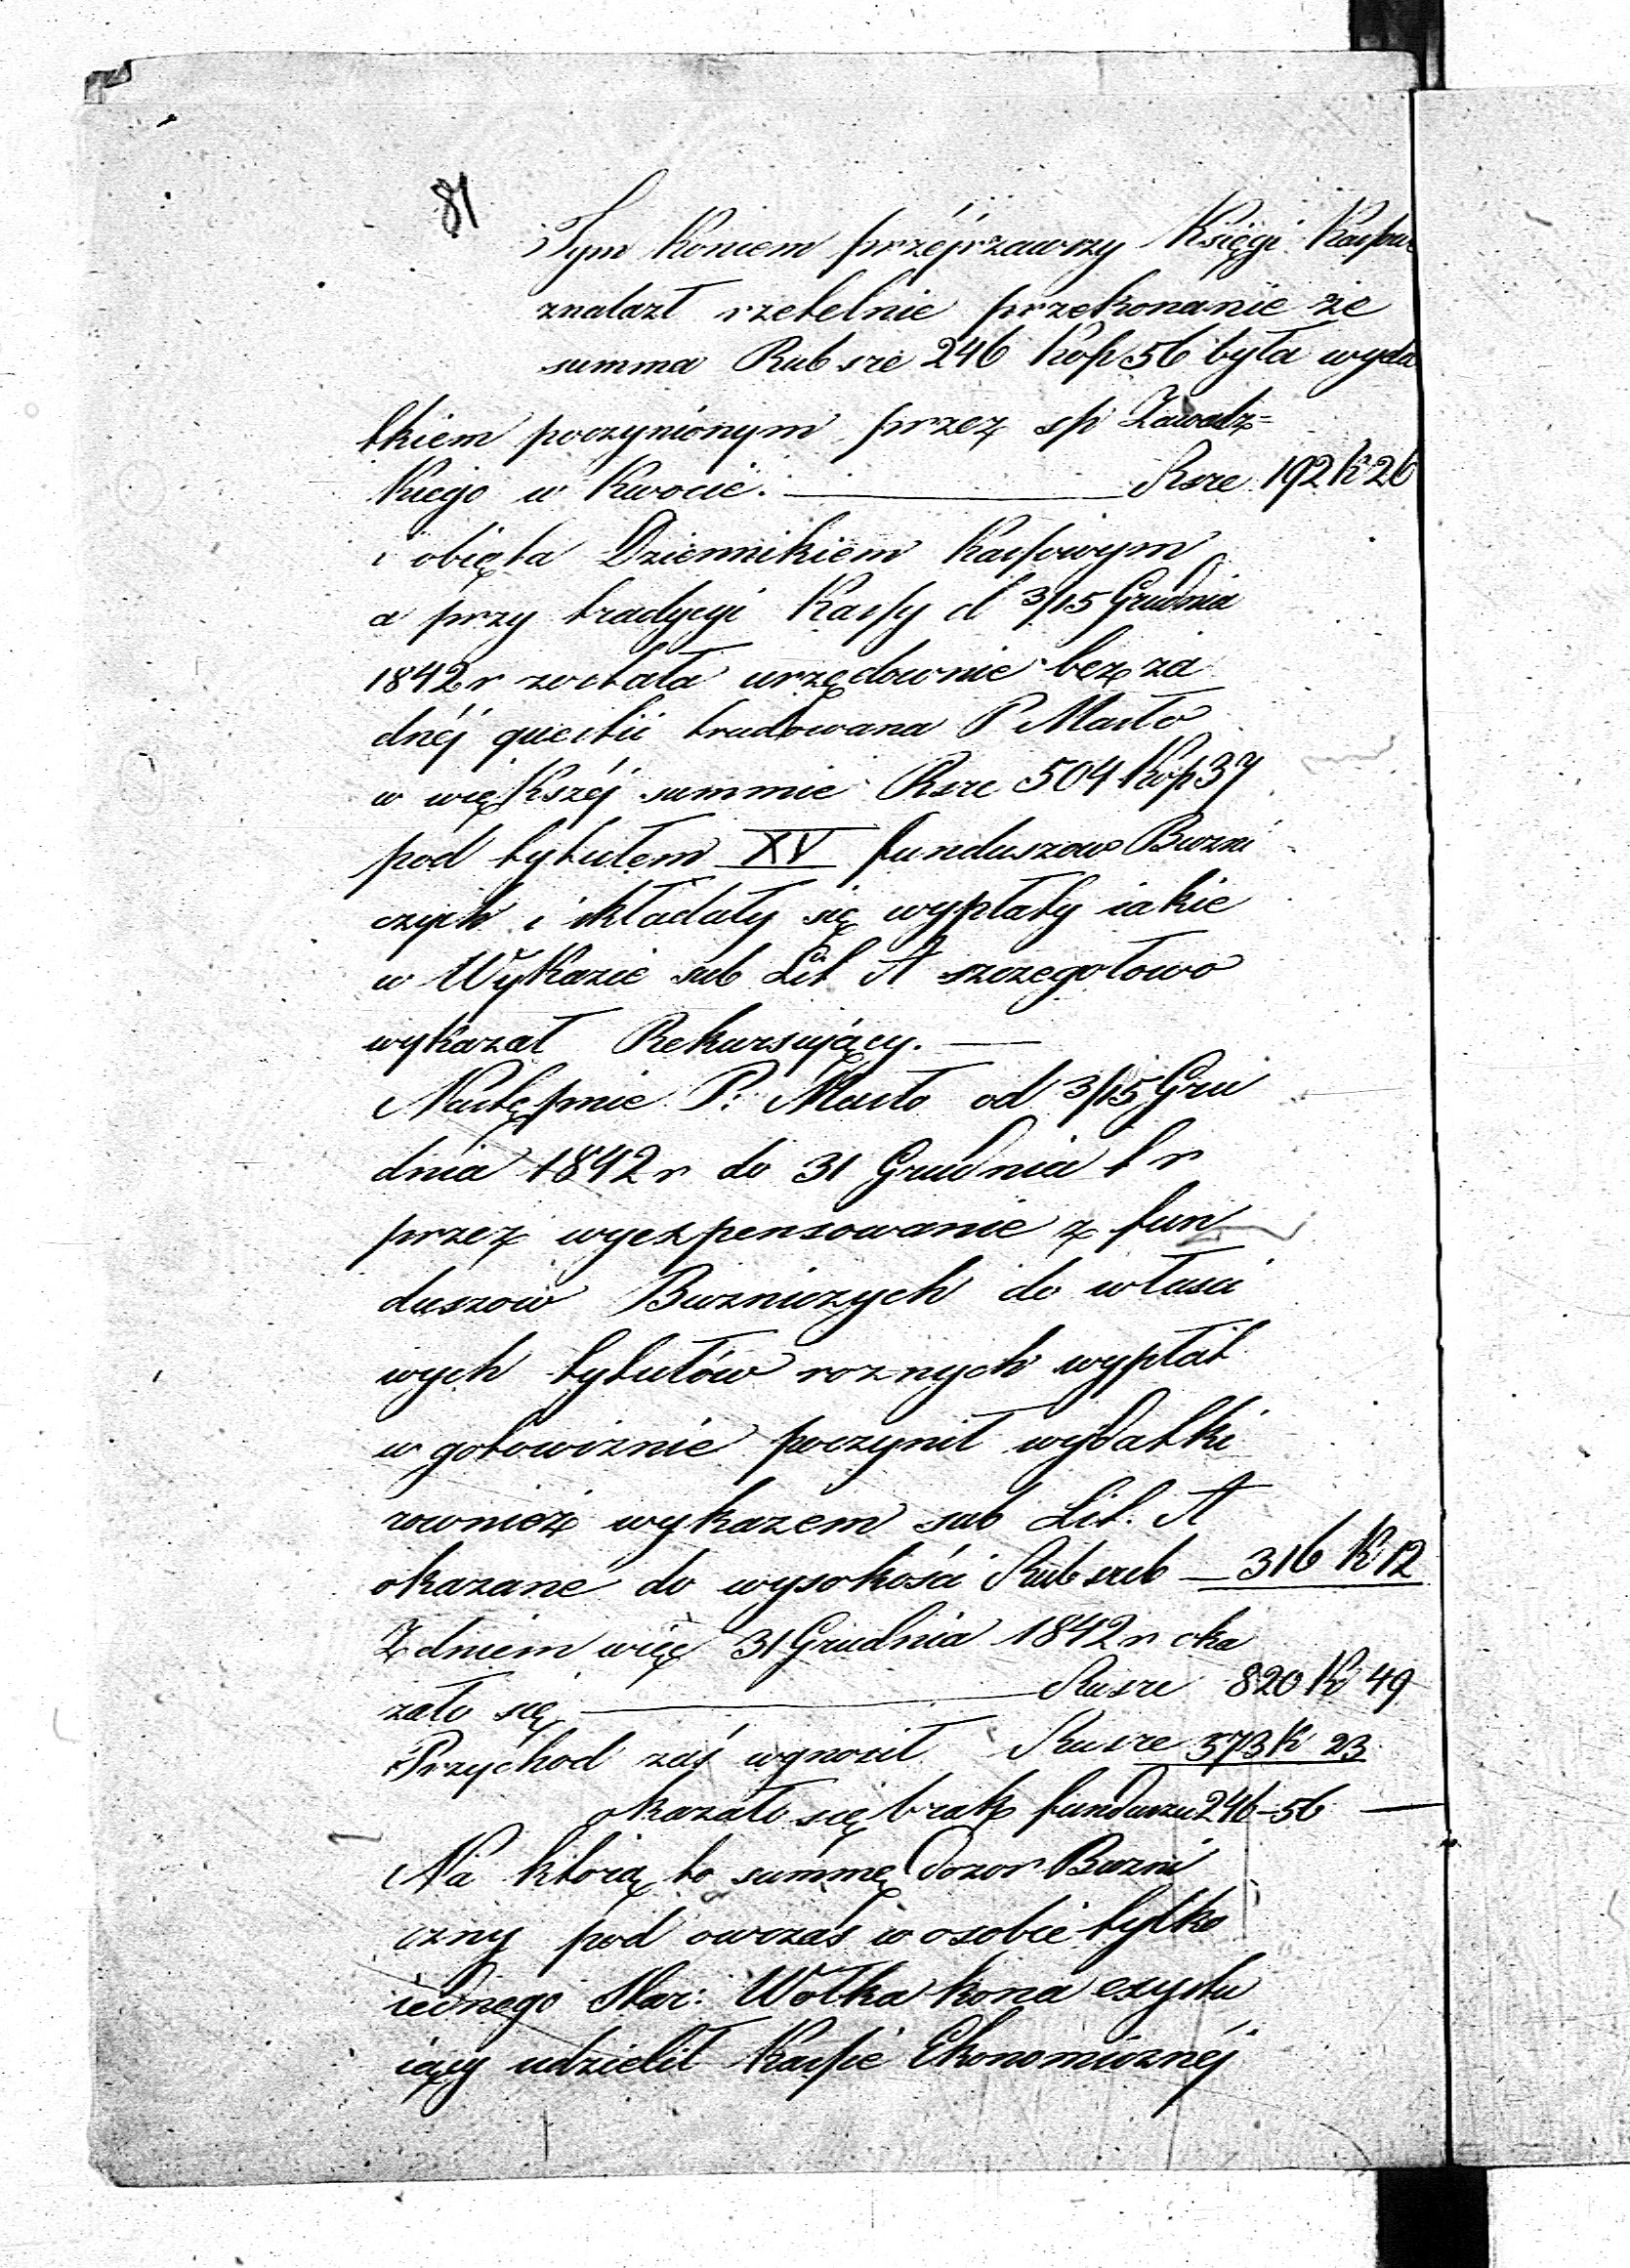 81
Tym koncem przéjrzawszy Księgi Kassowe
znalazł rzetelnie przekonanie że
summa Rub sre 246 Kop 56 była wyda
tkiem poczynionym przez sp Zawadz=
kiego w kwocie. Rsre 192 K 26
i obięta Dziennikiem Kassowym
a przy tradycyi Kassy d 3/15 Grudnia
1842 r została urzędownie bez ża
dnéj questii tradowana P Masło
w większéj summie Rsre 504 Kop 37
pod tytułem XV funduszow Bożni
czych i składały się wypłaty iakie
w Wykazie sub Lit A szczegołowo
wykazał Rekursujący. —
Następnie P: Masło od 3/15 Gru
dnia 1842 r do 31 Grudnia t r
przez wyexpensowanie z fun
duszow Bożniczych do właści
wych tytułów roznych wypłat
w gotowiznie poczynił wydatki
rownież wykazem sub Lit. A
okazane do wysokości Rub sreb — 316 K 12
Z dniem więc 31 Grudnia 1842 r oka
zało się — Rusre 820 K 49
Przychod zaś wynosił Rusre 573 K 23
okazało się brak funduszu 246-56 —
Na ktorą to summę Dozor Bożni
czny pod owczas w osobie tylko
iednego Star: Wołkakona exystu
iący udzielił Kassie Ekonomicznéj